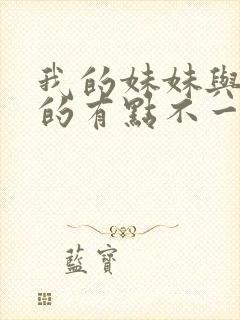 我的妹妹與
的有點不一
藍寶